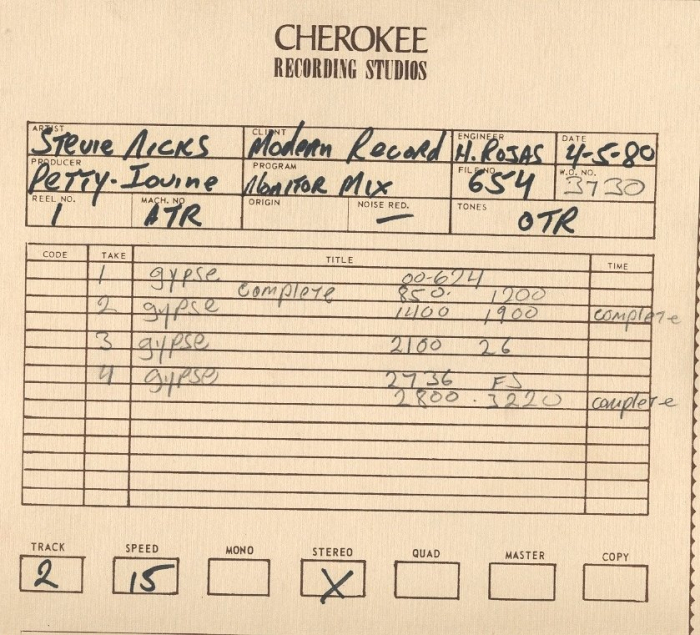 CHEROKEE
RECORDING STUDIOS
ARTIST Stevie Nicks CLIENT Modern Record ENGINEER H. ROJAS DATE 4-5-80
PRODUCER Petty-Iovine PROGRAM Monitor Mix FILE NO. 654 W.O. NO. 3730
REEL NO. 1 MACH. NO. ATR ORIGIN NOISE RED. — TONES OTR
CODE TAKE TITLE TIME
1 gypse 00-674
complete 850. 1200
2 gypse 1400 1900 complete
3 gypse 2100 26
4 gypse 2736 FS
2800 - 3220 complete
TRACK SPEED MONO STEREO QUAD MASTER COPY
2 15 X